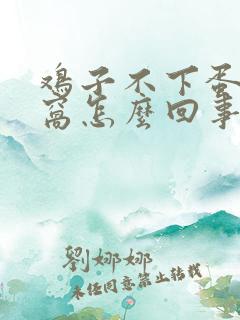 鸡子不下蛋
窩怎麼回事
劉娜娜
未经同意禁止转载